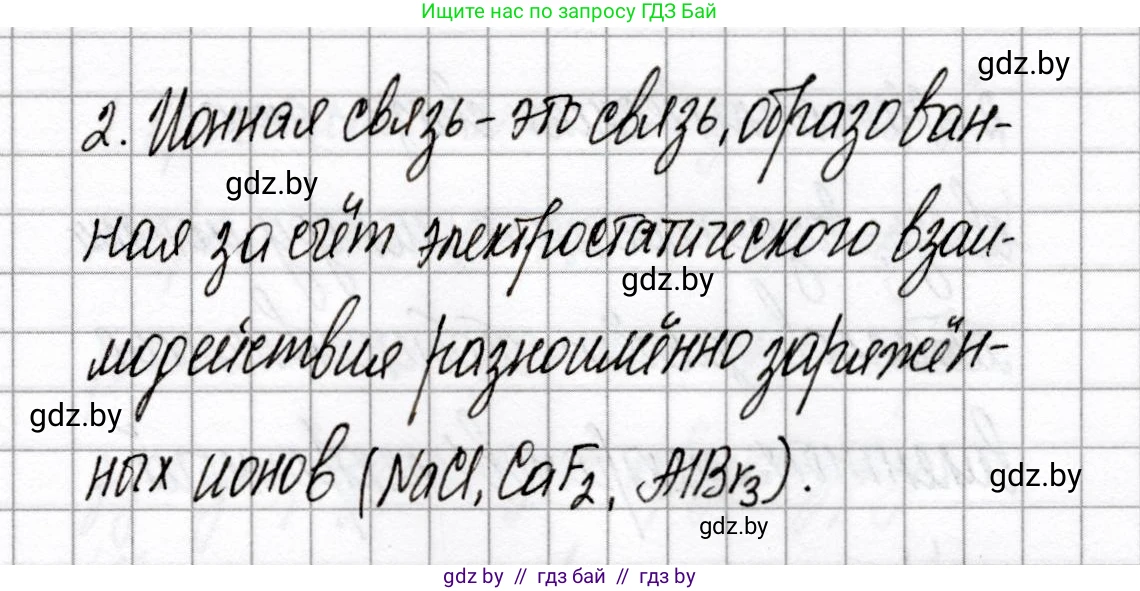 Ищите нас по запросу ГДЗ Бай
gdz.by
2. Ионная связь - это связь, образован-
gdz.by
ная за счёт электростатического взаи-
gdz.by
модействия разноимённо заряжён-
gdz.by
ных ионов (NaCl, CaF₂, AlBr₃).
gdz.by
gdz.by
gdz by // гдз бай // гдз by